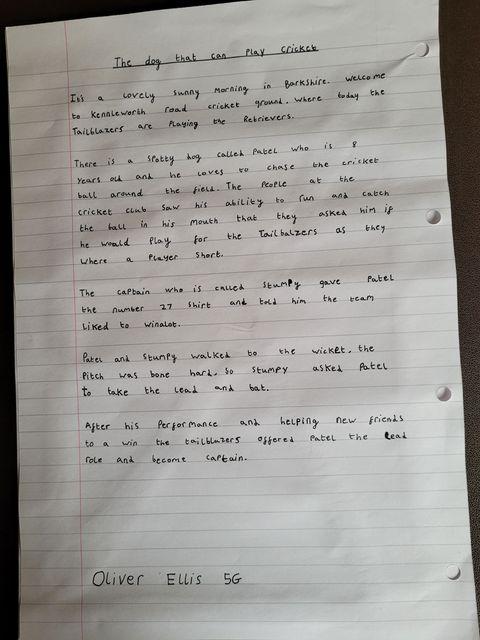 The dog that can play cricket
It's a lovely sunny morning in Barkshire. Welcome
to Kennleworth road cricket ground. Where today the
Tailblazers are playing the Retrievers.
There is a spotty dog called Patel who is 8
years old and he loves to chase the cricket
ball around the field. The people at the
cricket club saw his ability to run and catch
the ball in his mouth that they asked him if
he would play for the Tailbalzers as they
where a player short.
The captain who is called Stumpy gave Patel
the number 27 shirt and told him the team
liked to winalot.
Patel and Stumpy walked to the wicket, the
pitch was bone hard, so Stumpy asked Patel
to take the lead and bat.
After his performance and helping new friends
to a win the tailblazers offered Patel the lead
role and become captain.
Oliver Ellis 5G